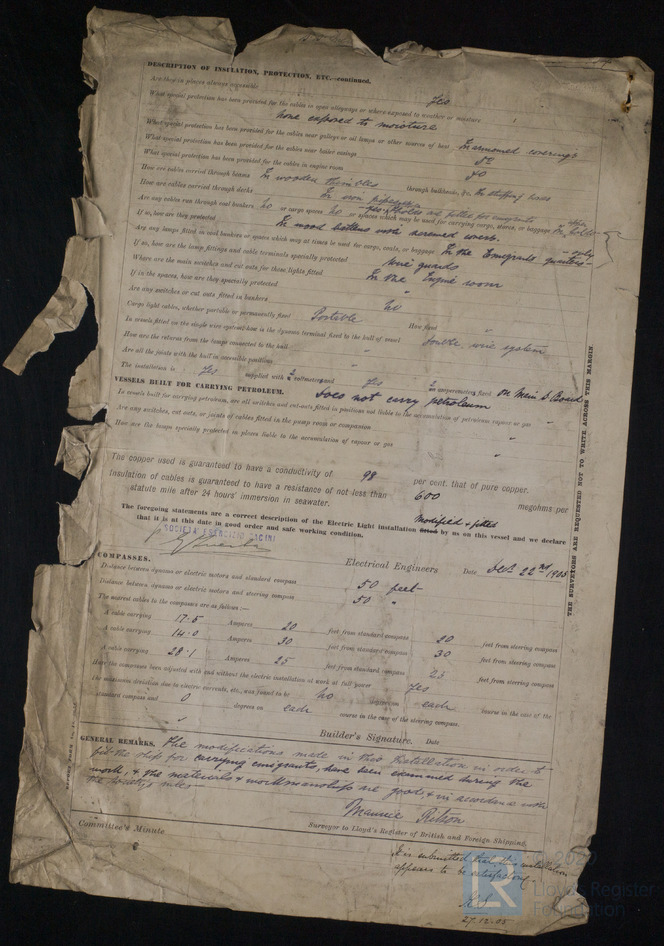 DESCRIPTION OF INSULATION, PROTECTION, ETC.—continued.
Are they in places always accessible Yes
What special protection has been provided for the cables in open alleyways or where exposed to weather or moisture
none exposed to moisture
What special protection has been provided for the cables near galleys or oil lamps or other sources of heat In armoured coverings
What special protection has been provided for the cables near boiler casings do
What special protection has been provided for the cables in engine room do
How are cables carried through beams In wooden thimbles through bulkheads, &c. In stuffing boxes
How are cables carried through decks In iron pipes
Are any cables run through coal bunkers no or cargo spaces no or spaces which may be used for carrying cargo, stores, or baggage
If so, how are they protected In wood battens with screwed covers.
Are any lamps fitted in coal bunkers or spaces which may at times be used for cargo, coals, or baggage In the Emigrants quarters only
If so, how are the lamp fittings and cable terminals specially protected wire guards
Where are the main switches and cut outs for these lights fitted In the Engine room
If in the spaces, how are they specially protected "
Are any switches or cut outs fitted in bunkers no
Cargo light cables, whether portable or permanently fixed Portable How fixed "
In vessels fitted on the single wire system how is the dynamo terminal fixed to the hull of vessel double wire system
How are the returns from the lamps connected to the hull "
Are all the joints with the hull in accessible positions "
The installation is Yes supplied with 2 voltmeters and Yes 2 an amperemeter, fixed on Main S. Board
VESSELS BUILT FOR CARRYING PETROLEUM. Does not carry petroleum
In vessels built for carrying petroleum, are all switches and cut-outs fitted in positions not liable to the accumulation of petroleum vapour or gas "
Are any switches, cut outs, or joints of cables fitted in the pump room or companion "
How are the lamps specially protected in places liable to the accumulation of vapour or gas "
The copper used is guaranteed to have a conductivity of 98 per cent. that of pure copper.
Insulation of cables is guaranteed to have a resistance of not less than 600 megohms per
statute mile after 24 hours' immersion in seawater.
Modified & fitted
The foregoing statements are a correct description of the Electric Light installation fitted by us on this vessel and we declare
that it is at this date in good order and safe working condition.
SOCIETA ESERCIZIO BACINI
Electrical Engineers Date Decr 22nd 1905
COMPASSES.
Distance between dynamo or electric motors and standard compass 50 feet
Distance between dynamo or electric motors and steering compass 50 "
The nearest cables to the compasses are as follows:—
A cable carrying 17.5 Ampères 20 feet from standard compass 20 feet from steering compass
A cable carrying 14.0 Ampères 30 feet from standard compass 30 feet from steering compass
A cable carrying 28.1 Ampères 25 feet from standard compass 25 feet from steering compass
Have the compasses been adjusted with and without the electric installation at work at full power Yes
The maximum deviation due to electric currents, etc., was found to be no degrees on each course in the case of the
standard compass and 0 degrees on each course in the case of the steering compass.
"
Builder's Signature. Date
GENERAL REMARKS. The modifications made in this installation in order to
fit the ship for carrying emigrants, have been examined during the
work, & the materials & workmanship are good & in accordance with
the Society's rules
Maurice Ritson
Surveyor to Lloyd's Register of British and Foreign Shipping.
Committee's Minute
It is submitted that this installation
appears to be satisfactory
27.12.05
THE SURVEYORS ARE REQUESTED NOT TO WRITE ACROSS THIS MARGIN.
LR
© 2020
Lloyd's Register
Foundation